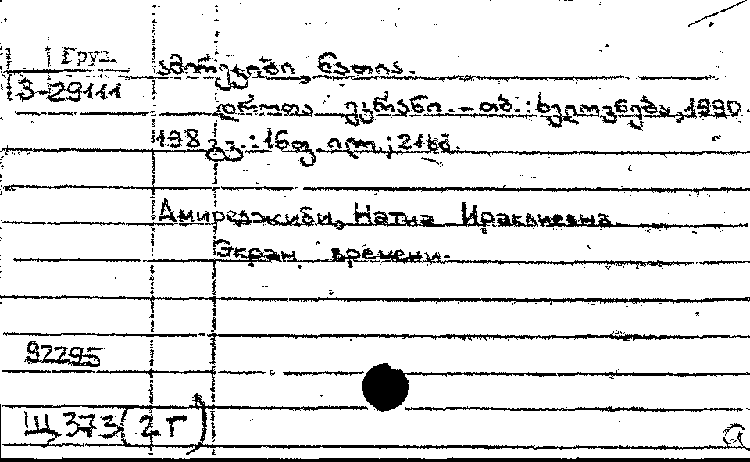 Егруз
3-29111
ამირეჯიბი, ნათია.
დროთა ეკრანი. – თბ. : ხელოვნება, 1990.
198 გვ. : 16ფ. ილ.; 21სმ.
Амиреджиби, Натиа Ираклиевна.
Экран времени.
92295
Щ373(2Г)
а